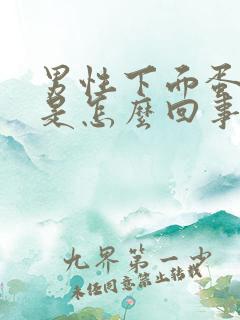 男性下面蛋
是怎麽回事
九界第一少
未经同意禁止转载